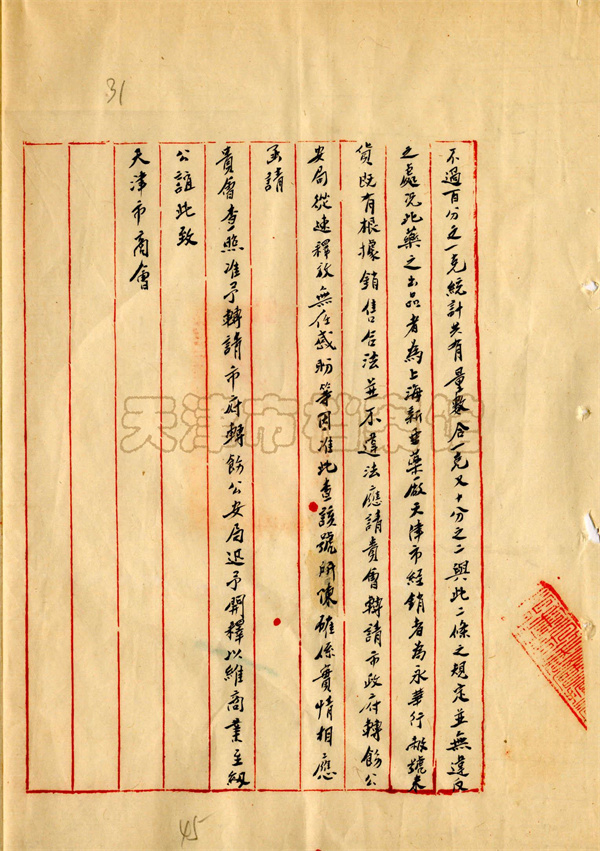 31
不過百分之一克統計共有量數合一克又十分之二與此二條之規定並無違反
之處況此藥之出品者為上海新亞藥廠天津市經銷者為永華行敝號來
貨既有根據銷售合法並不違法應請貴會轉請市政府轉飭公
安局從速釋放無任感盼等因准此查該號所陳確係實情相應
函請
貴會查照准予轉請市府轉飭公安局迅予開釋以維商業至紉
公誼此致
天津市商會
天津市档案馆
45